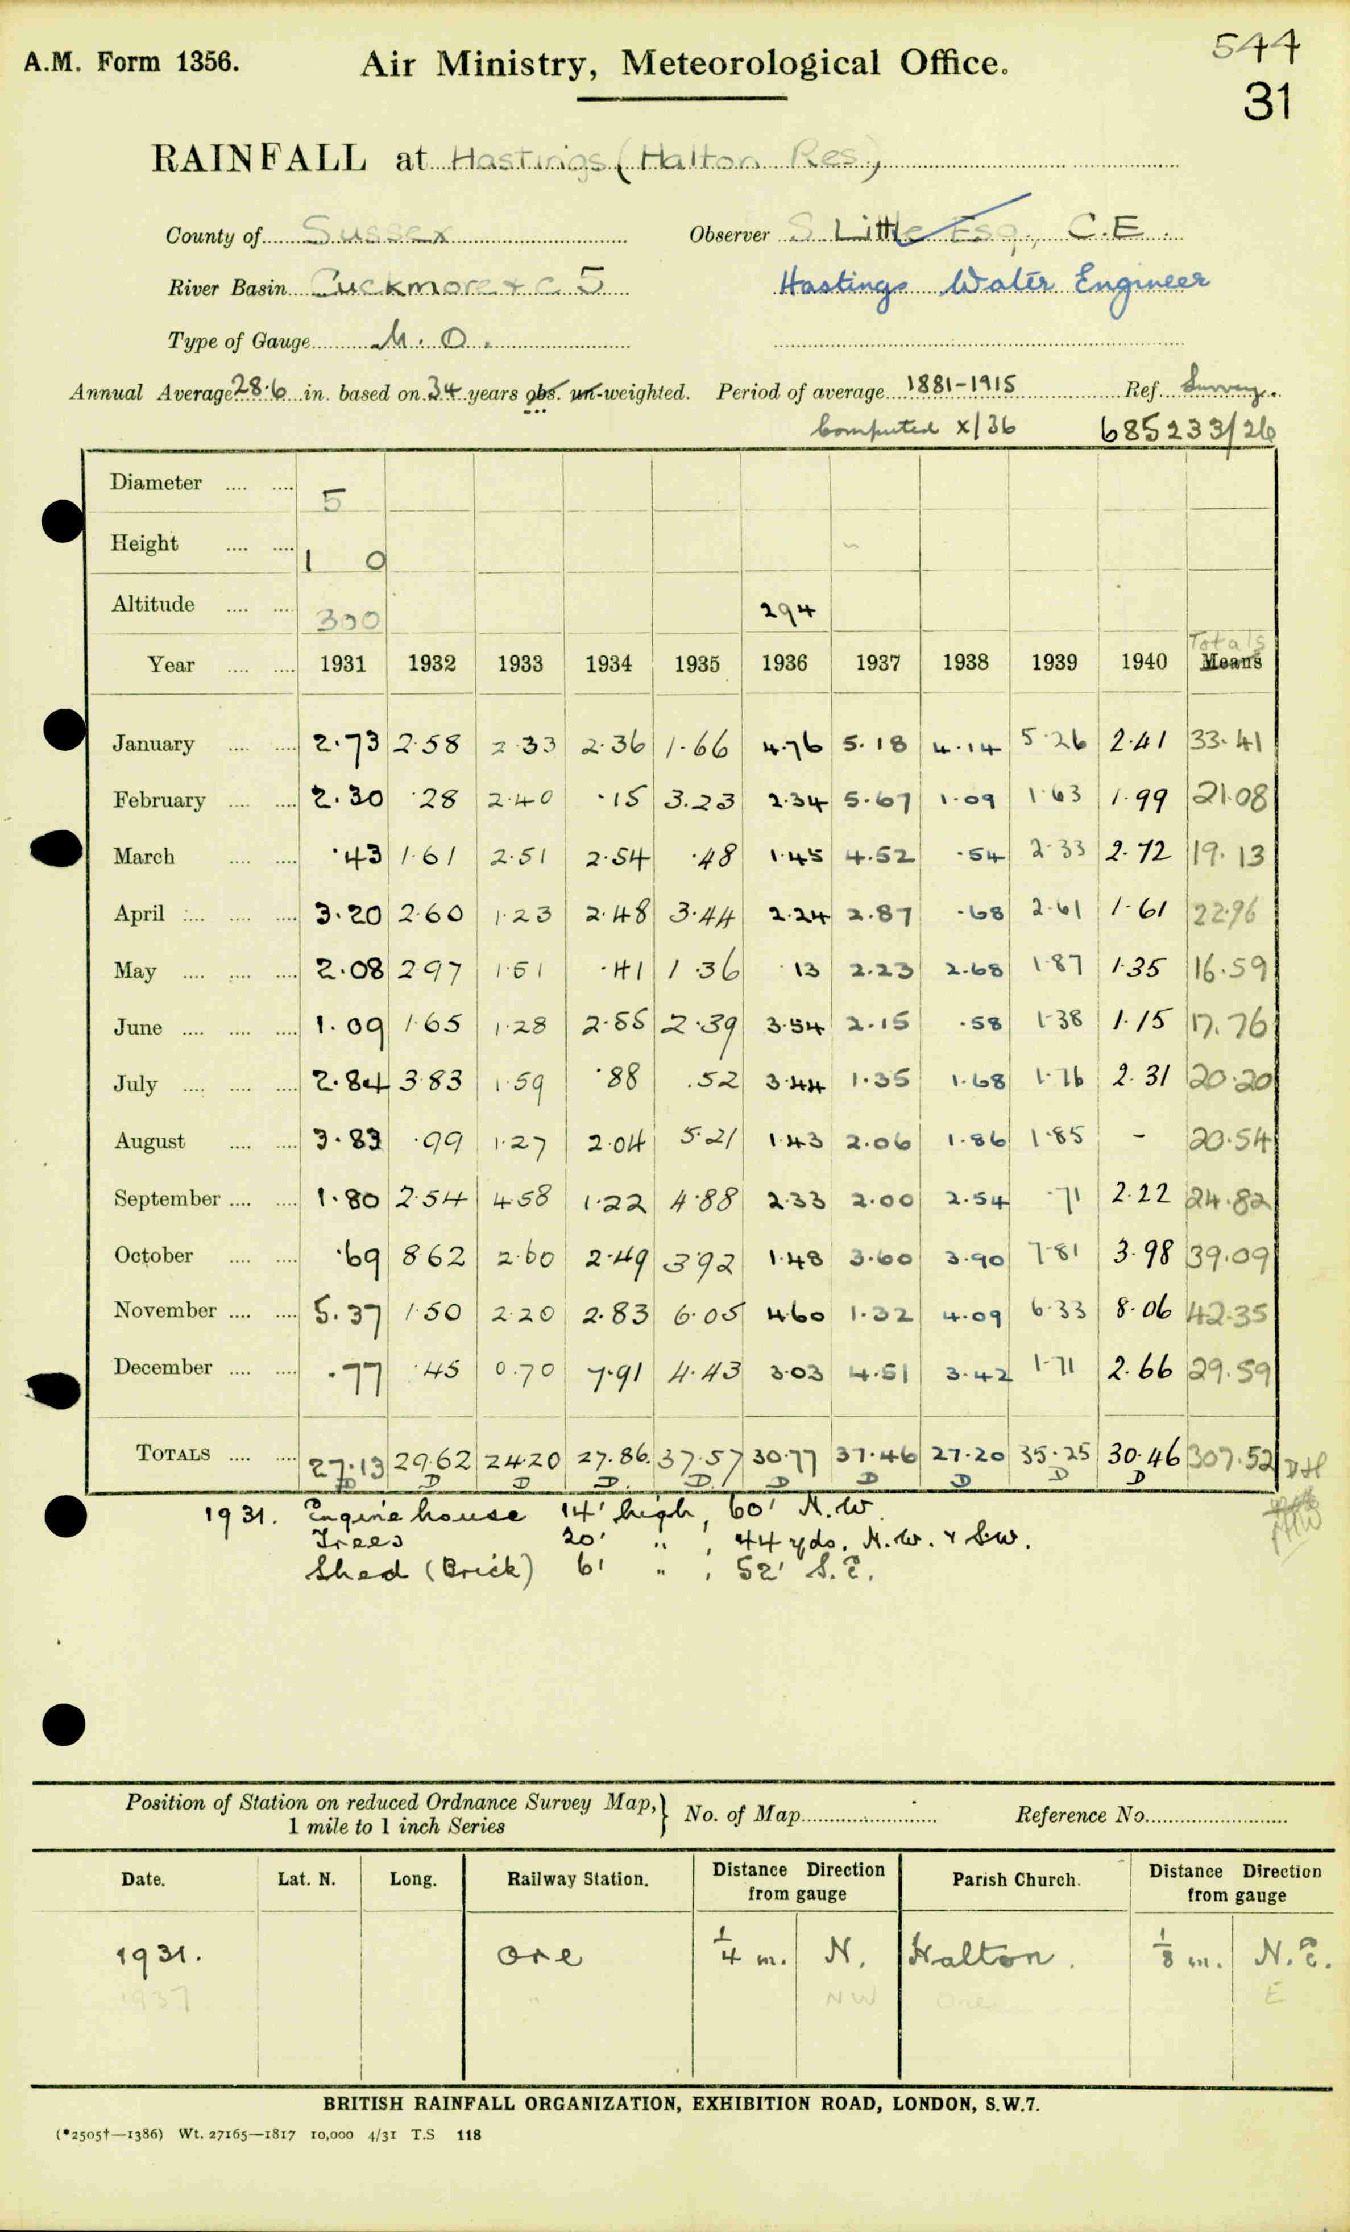 544
A.M. Form 1356. Air Ministry, Meteorological Office.
31
RAINFALL at Hastings (Halton Res)
County of Sussex Observer S Little Esq., C.E.
River Basin Cuckmore & C. 5 Hastings Water Engineer
Type of Gauge M. O.
Annual Average 28.6 in. based on 34 years obs. un-weighted. Period of average 1881-1915 Ref. Survey.
Computed X/36 685233/26
Diameter .... .... 5
Height .... .... 1 0
Altitude .... .... 300 294
Totals
Year .... .... 1931 1932 1933 1934 1935 1936 1937 1938 1939 1940 Means
January .... .... 2.73 2.58 2.33 2.36 1.66 4.76 5.18 4.14 5.26 2.41 33.41
February .... .... 2.30 .28 2.40 .15 3.23 2.34 5.67 1.09 1.63 1.99 21.08
March .... .... .43 1.61 2.51 2.54 .48 1.45 4.52 .54 2.33 2.72 19.13
April .... .... .... 3.20 2.60 1.23 2.48 3.44 2.24 2.87 .68 2.61 1.61 22.96
May .... .... .... 2.08 2.97 1.51 .41 1.36 .13 2.23 2.68 1.87 1.35 16.59
June .... .... .... 1.09 1.65 1.28 2.55 2.39 3.54 2.15 .58 1.38 1.15 17.76
July .... .... .... 2.84 3.83 1.59 .88 .52 3.44 1.35 1.68 1.76 2.31 20.20
August .... .... 3.83 .99 1.27 2.04 5.21 1.43 2.06 1.86 1.85 - 20.54
September .... .... 1.80 2.54 4.58 1.22 4.88 2.33 2.00 2.54 .71 2.22 24.82
October .... .... .69 8.62 2.60 2.49 3.92 1.48 3.60 3.90 7.81 3.98 39.09
November .... .... 5.37 1.50 2.20 2.83 6.05 4.60 1.32 4.09 6.33 8.06 42.35
December .... .... .77 .45 0.70 7.91 4.43 3.03 4.51 3.42 1.71 2.66 29.59
TOTALS .... .... 27.13 29.62 24.20 27.86 37.57 30.77 37.46 27.20 35.25 30.46 307.52 DH
D D D D D D D D D D
1931. Engine house 14' high, 60' N.W.
Trees 20' " , 44 yds. N.W. & S.W.
Shed (Brick) 6' " , 52' S.E.
Position of Station on reduced Ordnance Survey Map, 1 mile to 1 inch Series } No. of Map Reference No.
Date. Lat. N. Long. Railway Station. Distance Direction from gauge Parish Church. Distance Direction from gauge
1931. Ore 1/4 m. N. Halton. 1/8 m. N.E.
1937 " NW Ore E
BRITISH RAINFALL ORGANIZATION, EXHIBITION ROAD, LONDON, S.W.7.
(*2505†—1386) Wt. 27165—1817 10,000 4/31 T.S 118